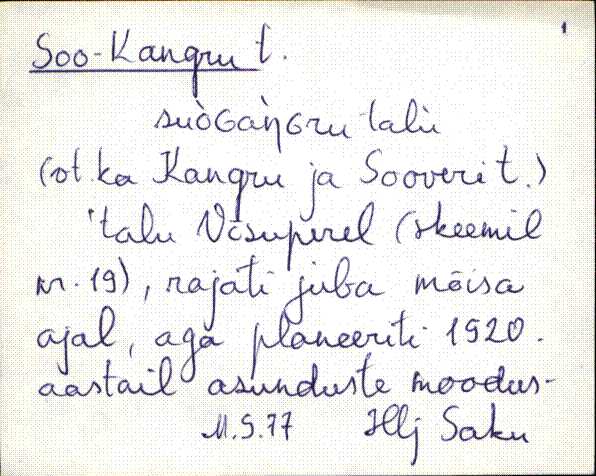 1
Soo-Kangru t.
suòGaǹGru talù
(vt. ka Kangru ja Sooveri t.)
talu Võsuperel (skeemil
nr. 19), rajati juba mõisa
ajal, aga planeeriti 1920.
aastail asunduste moodus-
M.S.77 Hlj Saku